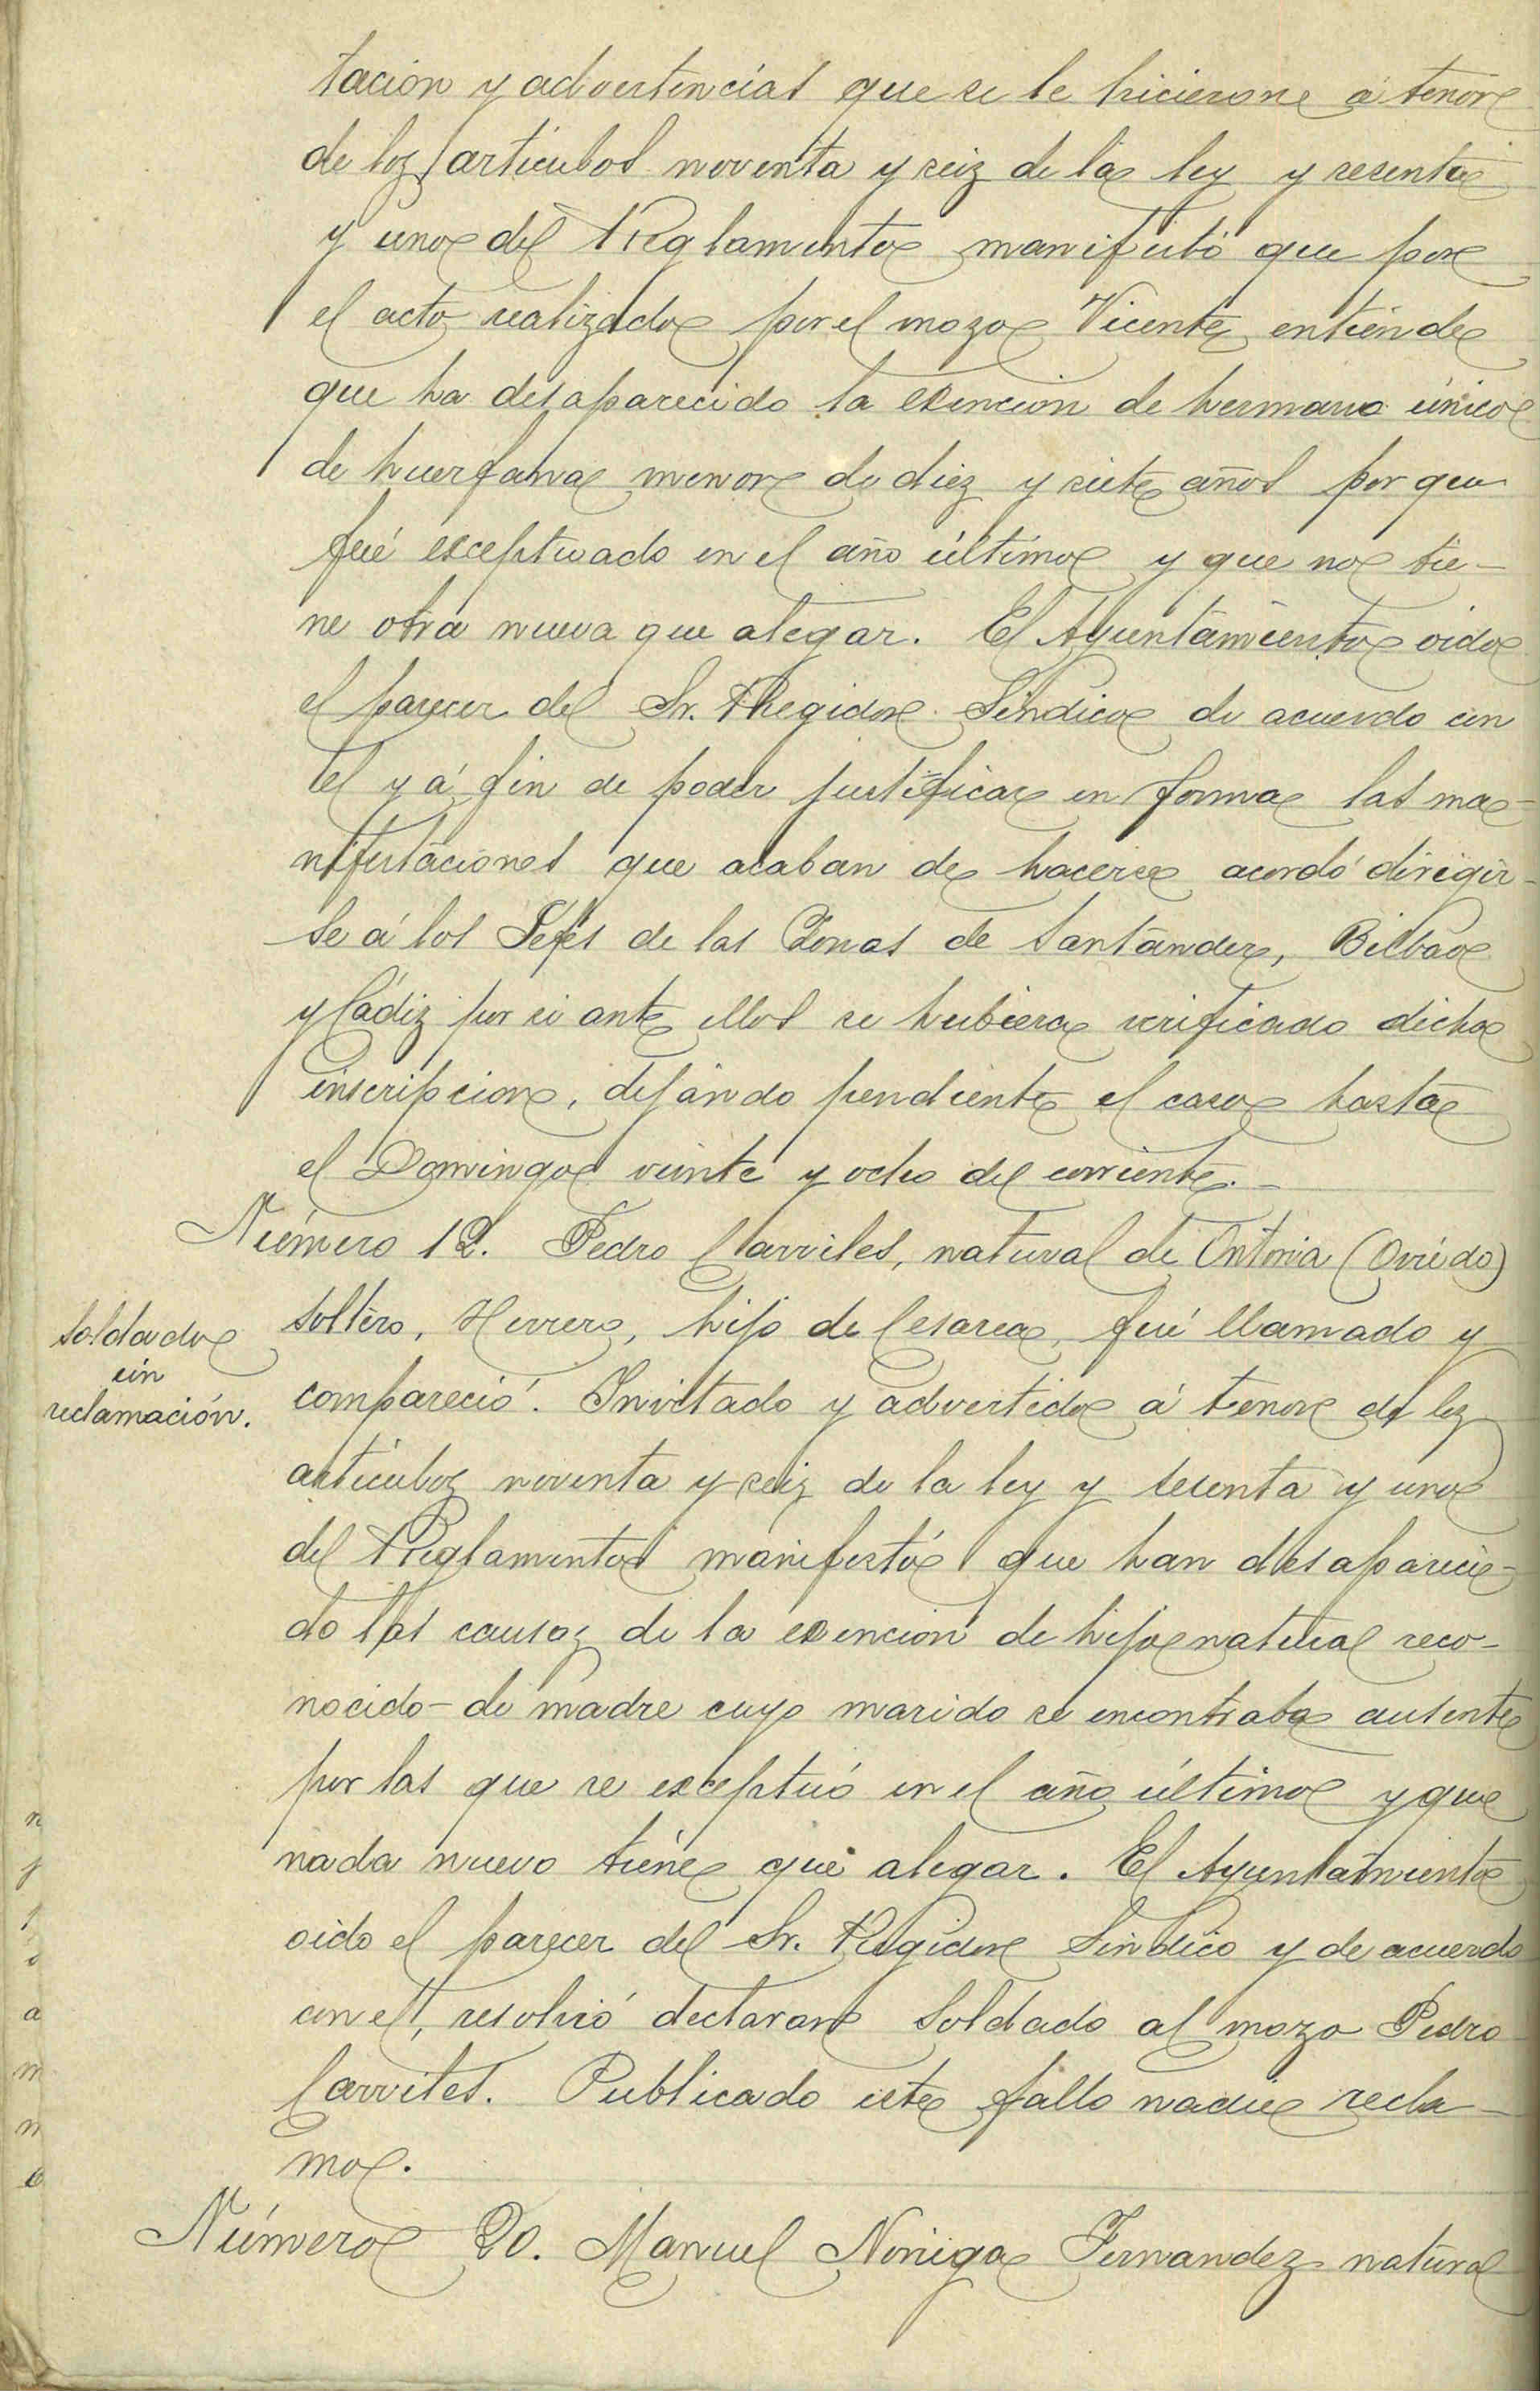 tacion y advertencias que se le hicieron á tenor
de los artículos noventa y seis de la ley y sesenta
y uno del Reglamento manifestó que por
el acto realizado por el mozo Vicente entiende
que ha desaparecido la exencion de hermano único
de huerfana menor de diez y siete años por que
fué exceptuado en el año último y que no tie-
ne otra nueva que alegar. El Ayuntamiento oido
el parecer del Sr. Regidor Síndico de acuerdo con
el y á fin de poder justificar en forma las ma-
nifestaciones que acaban de hacerse acordó dirigir-
se á los Jefes de las Zonas de Santander, Bilbao
y Cádiz por si ante ellos se hubiera verificado dicha
inscripcion, dejando pendiente el caso hasta
el Domingo veinte y ocho del corriente.
Número 12. Pedro Carriles, natural de Ontoria (Oviedo)
soltero, Herrero, hijo de Cesarea, fué llamado y
Soldado
sin
reclamación.
compareció. Invitado y advertido á tenor de los
artículos noventa y seis de la ley y sesenta y uno
del Reglamento manifestó que han desapareci-
do las causas de la exencion de hijo natural reco-
nocido de madre cuyo marido se encontraba ausente
por las que se exceptuó en el año último y que
nada nuevo tiene que alegar. El Ayuntamiento
oido el parecer del Sr. Regidor Síndico y de acuerdo
con el, resolvió declarar Soldado al mozo Pedro
Carriles. Publicado este fallo nadie recla-
mo.
Número 20. Manuel Noriega Fernandez natural